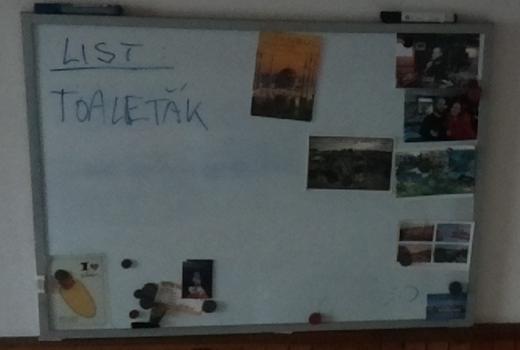 LIST
TOALEŤÁK
I ♥